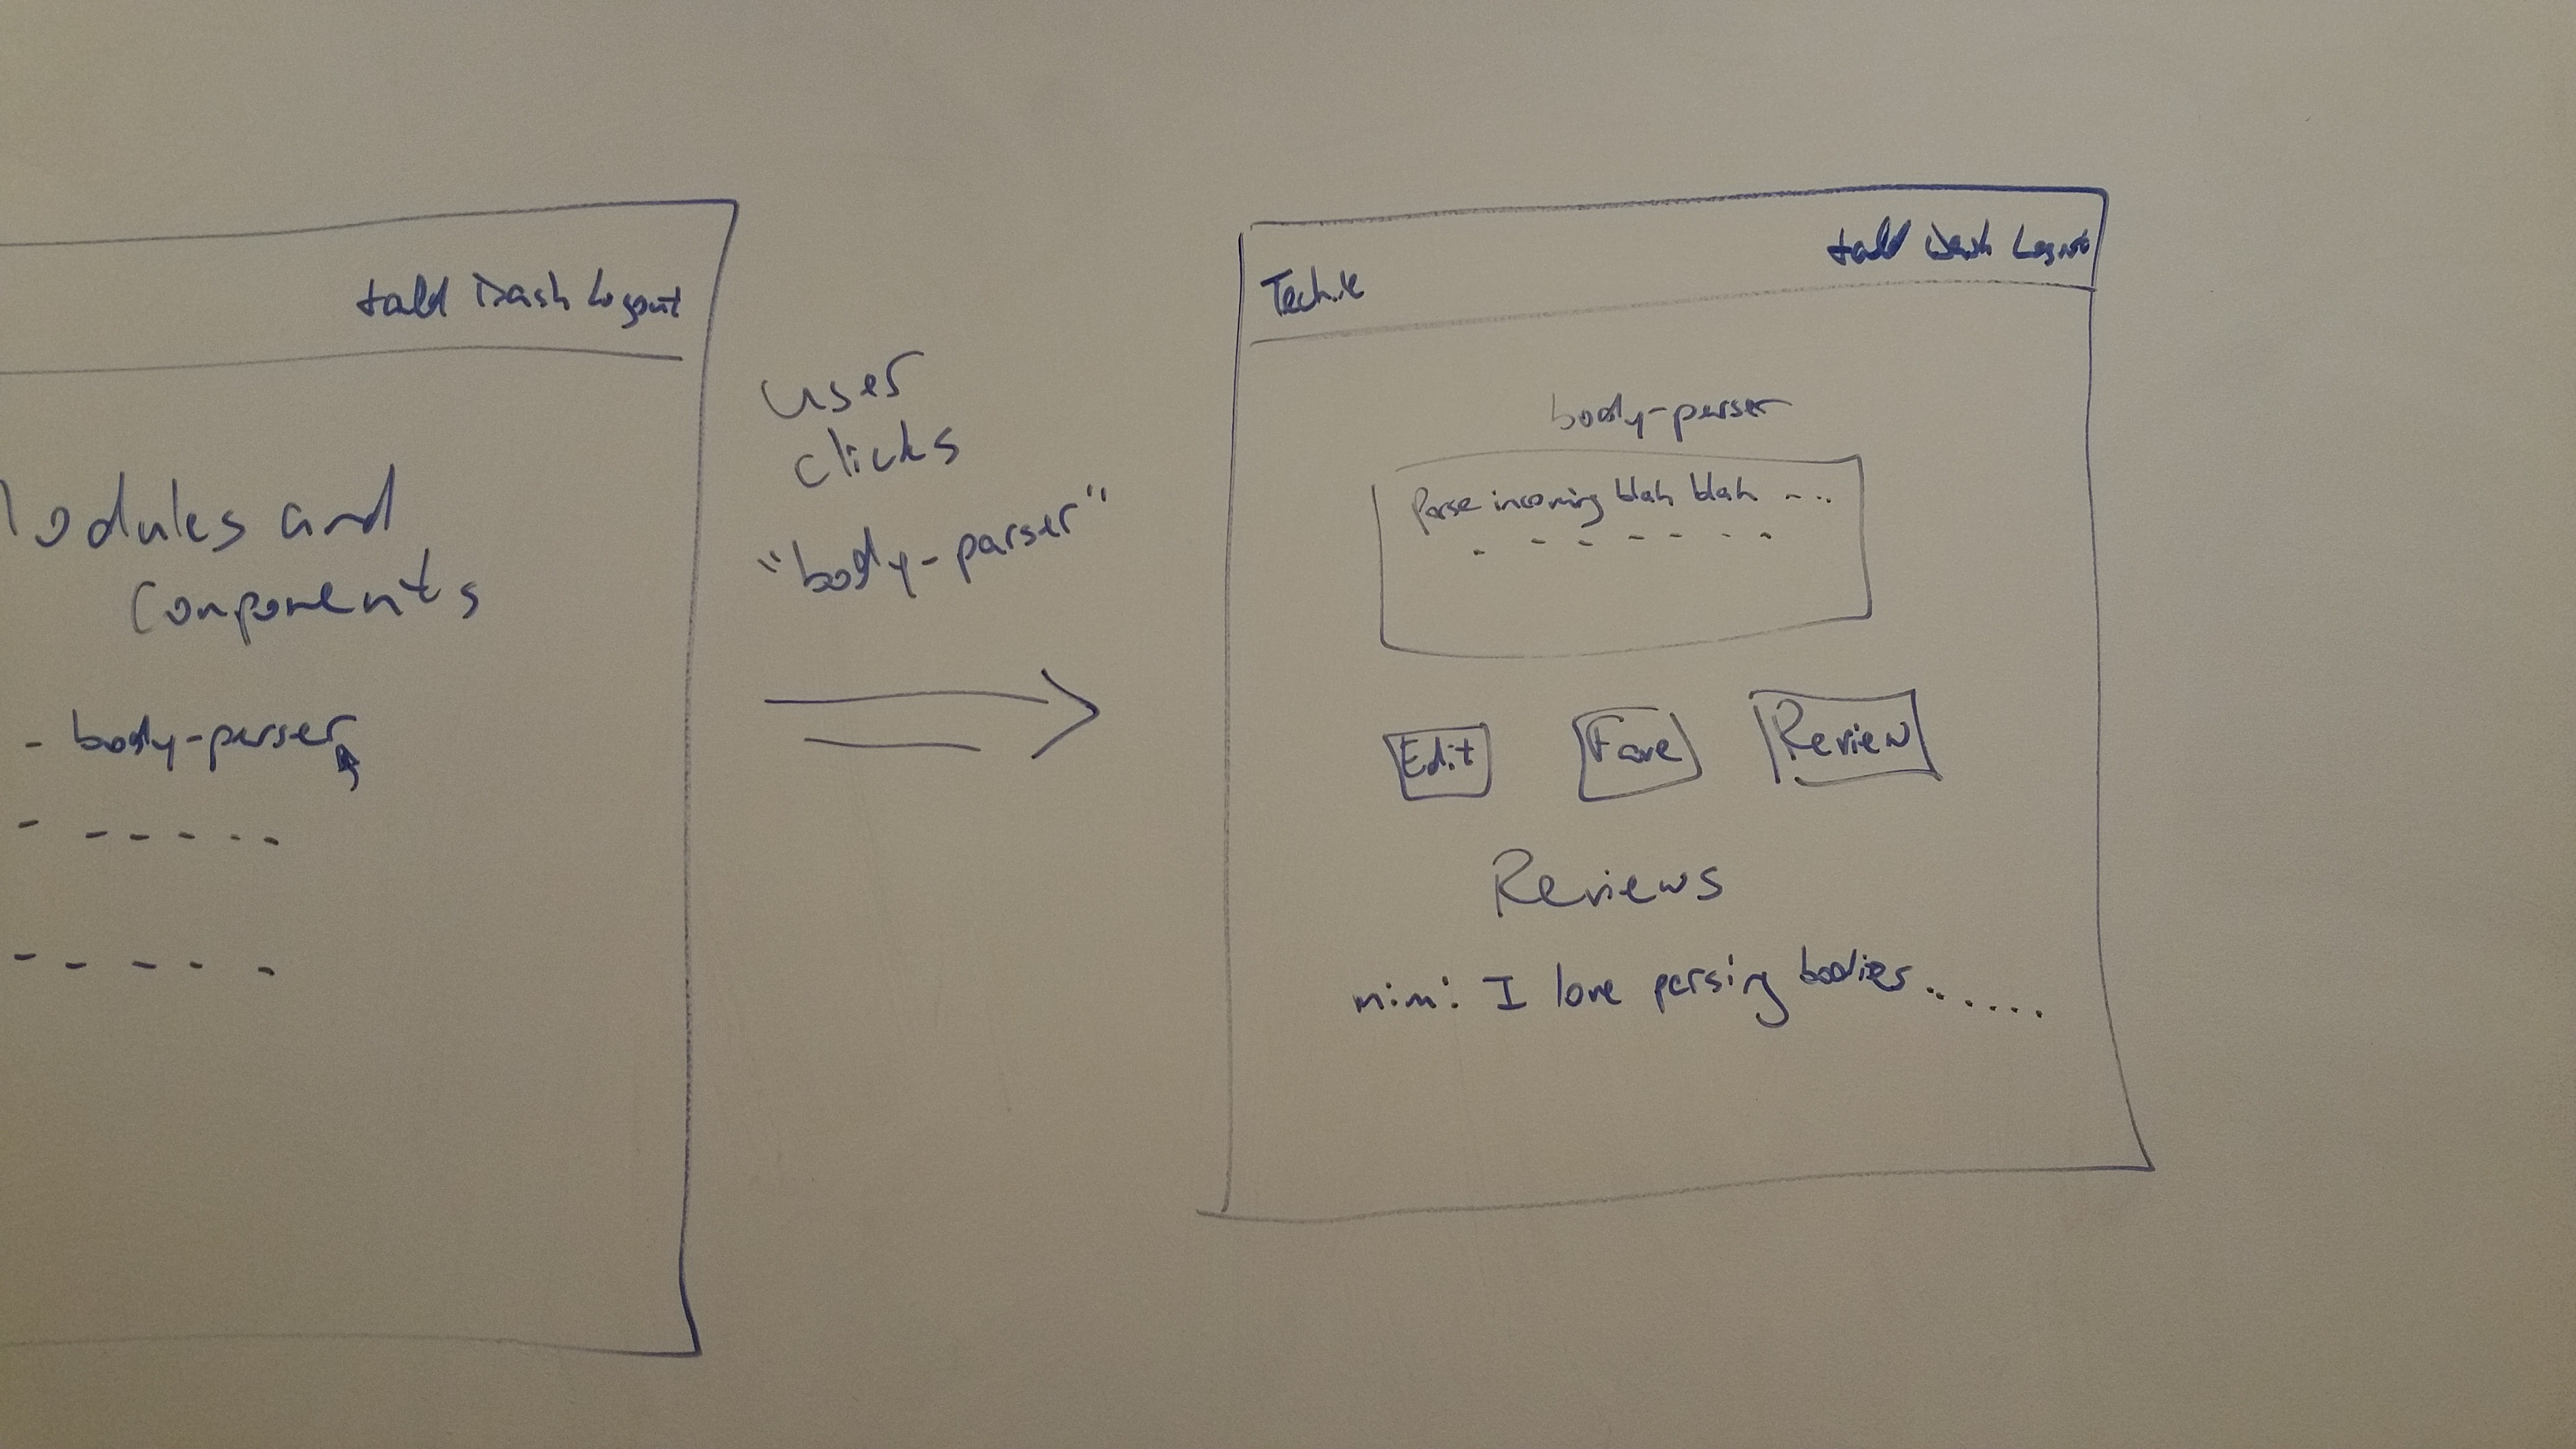 tald Dash Logout
Modules and
Components
- body-parser
user
clicks
"body-parser"
Techie
tald Dash Logout
body-parser
Parse incoming blah blah ....
Edit
Fave
Review
Reviews
mim: I love parsing bodies......